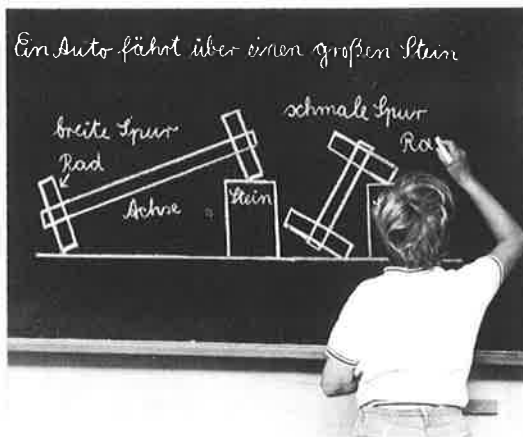 Ein Auto fährt über einen großen Stein
breite Spur
Rad
Achse
Stein
schmale Spur
Ra